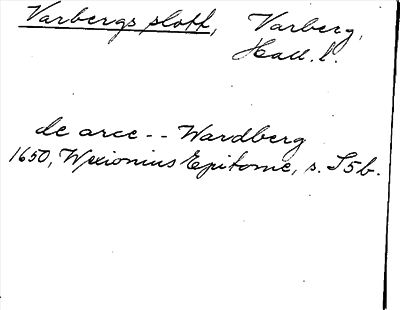 Varbergs slott, Varberg,
Hall. l.
de arce -- Wardberg
1650, Wexionius Epitome, s. S5b.